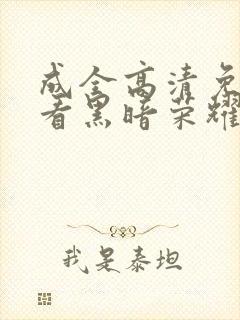 成全高清免
看黑暗荣耀
我是泰坦